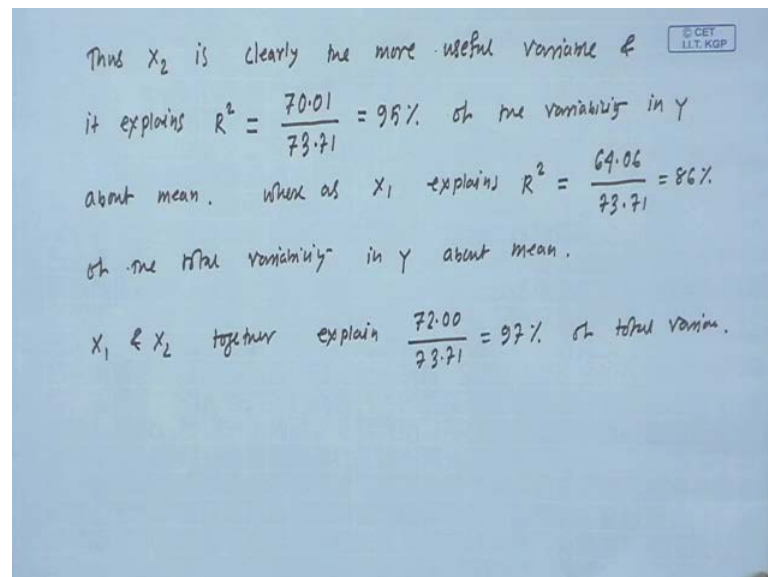 © CET
I.I.T. KGP
Thus X₂ is clearly the more useful variable &
it explains R² = 70.01 / 73.71 = 95% of the variability in Y
about mean. where as X₁ explains R² = 64.06 / 73.71 = 86%
of the total variability in Y about mean.
X₁ & X₂ together explain 72.00 / 73.71 = 97% of total varian.